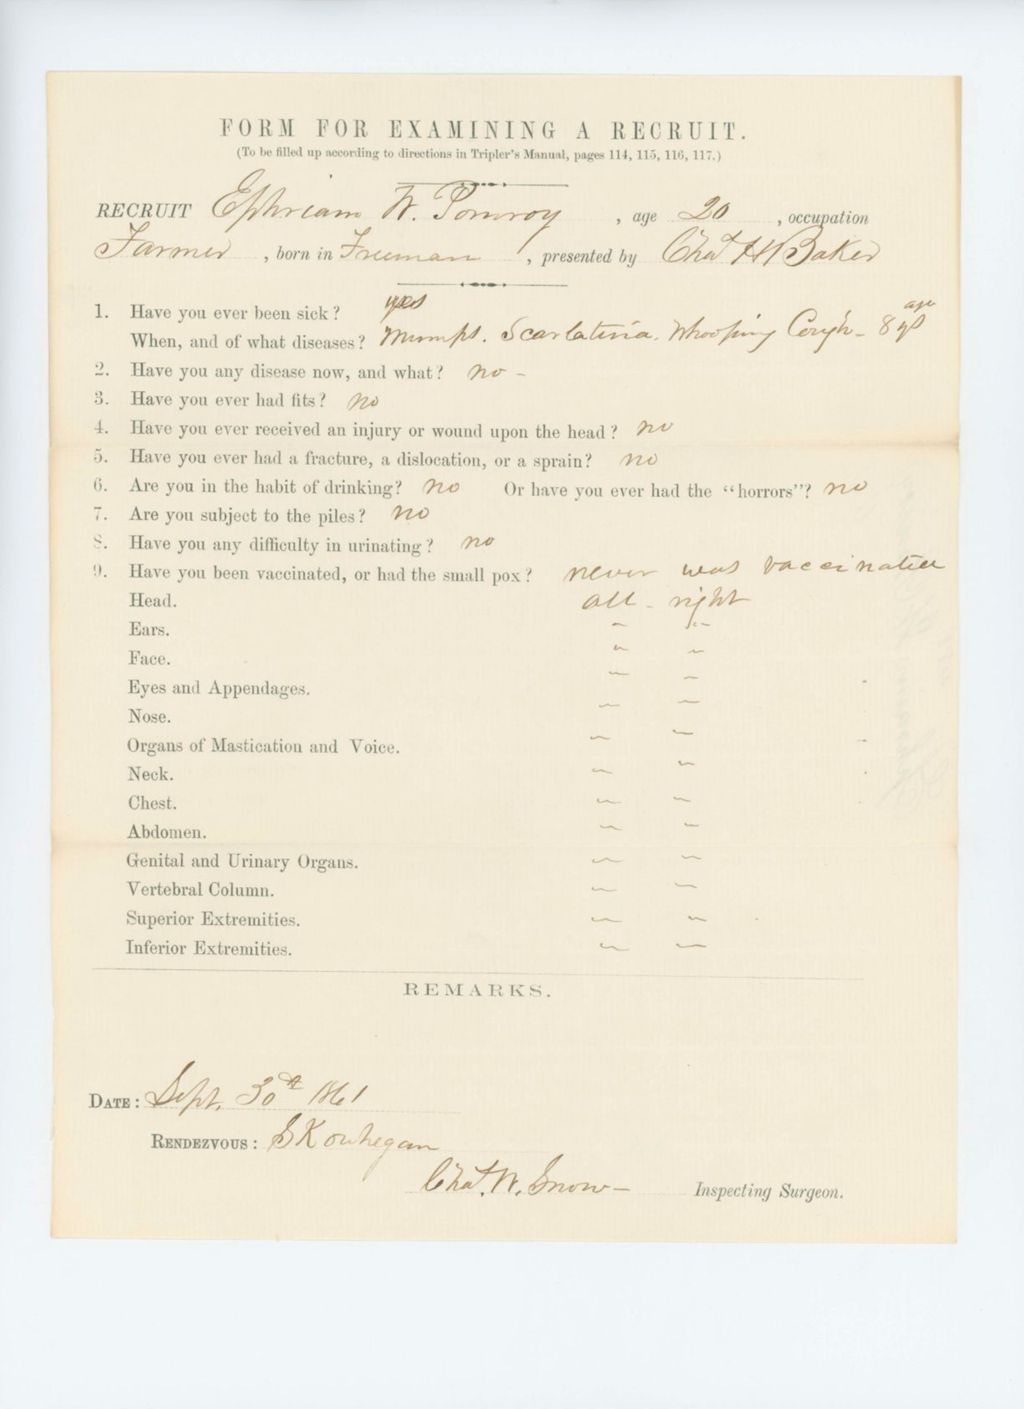 FORM FOR EXAMINING A RECRUIT.
(To be filled up according to directions in Tripler's Manual, pages 114, 115, 116, 117.)
RECRUIT Ephriam W. Pomroy, age 20, occupation
Farmer, born in Freeman, presented by Chas H Baker
1. Have you ever been sick? yes
When, and of what diseases? Mumps. Scarlatina. Whooping Cough - 8 ys age
2. Have you any disease now, and what? no -
3. Have you ever had fits? no
4. Have you ever received an injury or wound upon the head? no
5. Have you ever had a fracture, a dislocation, or a sprain? no
6. Are you in the habit of drinking? no Or have you ever had the "horrors"? no
7. Are you subject to the piles? no
8. Have you any difficulty in urinating? no
9. Have you been vaccinated, or had the small pox? never was vaccinated
Head. all - right
Ears. " "
Face. " "
Eyes and Appendages. " "
Nose. " "
Organs of Mastication and Voice. " "
Neck. " "
Chest. " "
Abdomen. " "
Genital and Urinary Organs. " "
Vertebral Column. " "
Superior Extremities. " "
Inferior Extremities. " "
REMARKS.
DATE: Sept. 30th 1861
RENDEZVOUS: SKowhegan
Chas. W. Snow - Inspecting Surgeon.